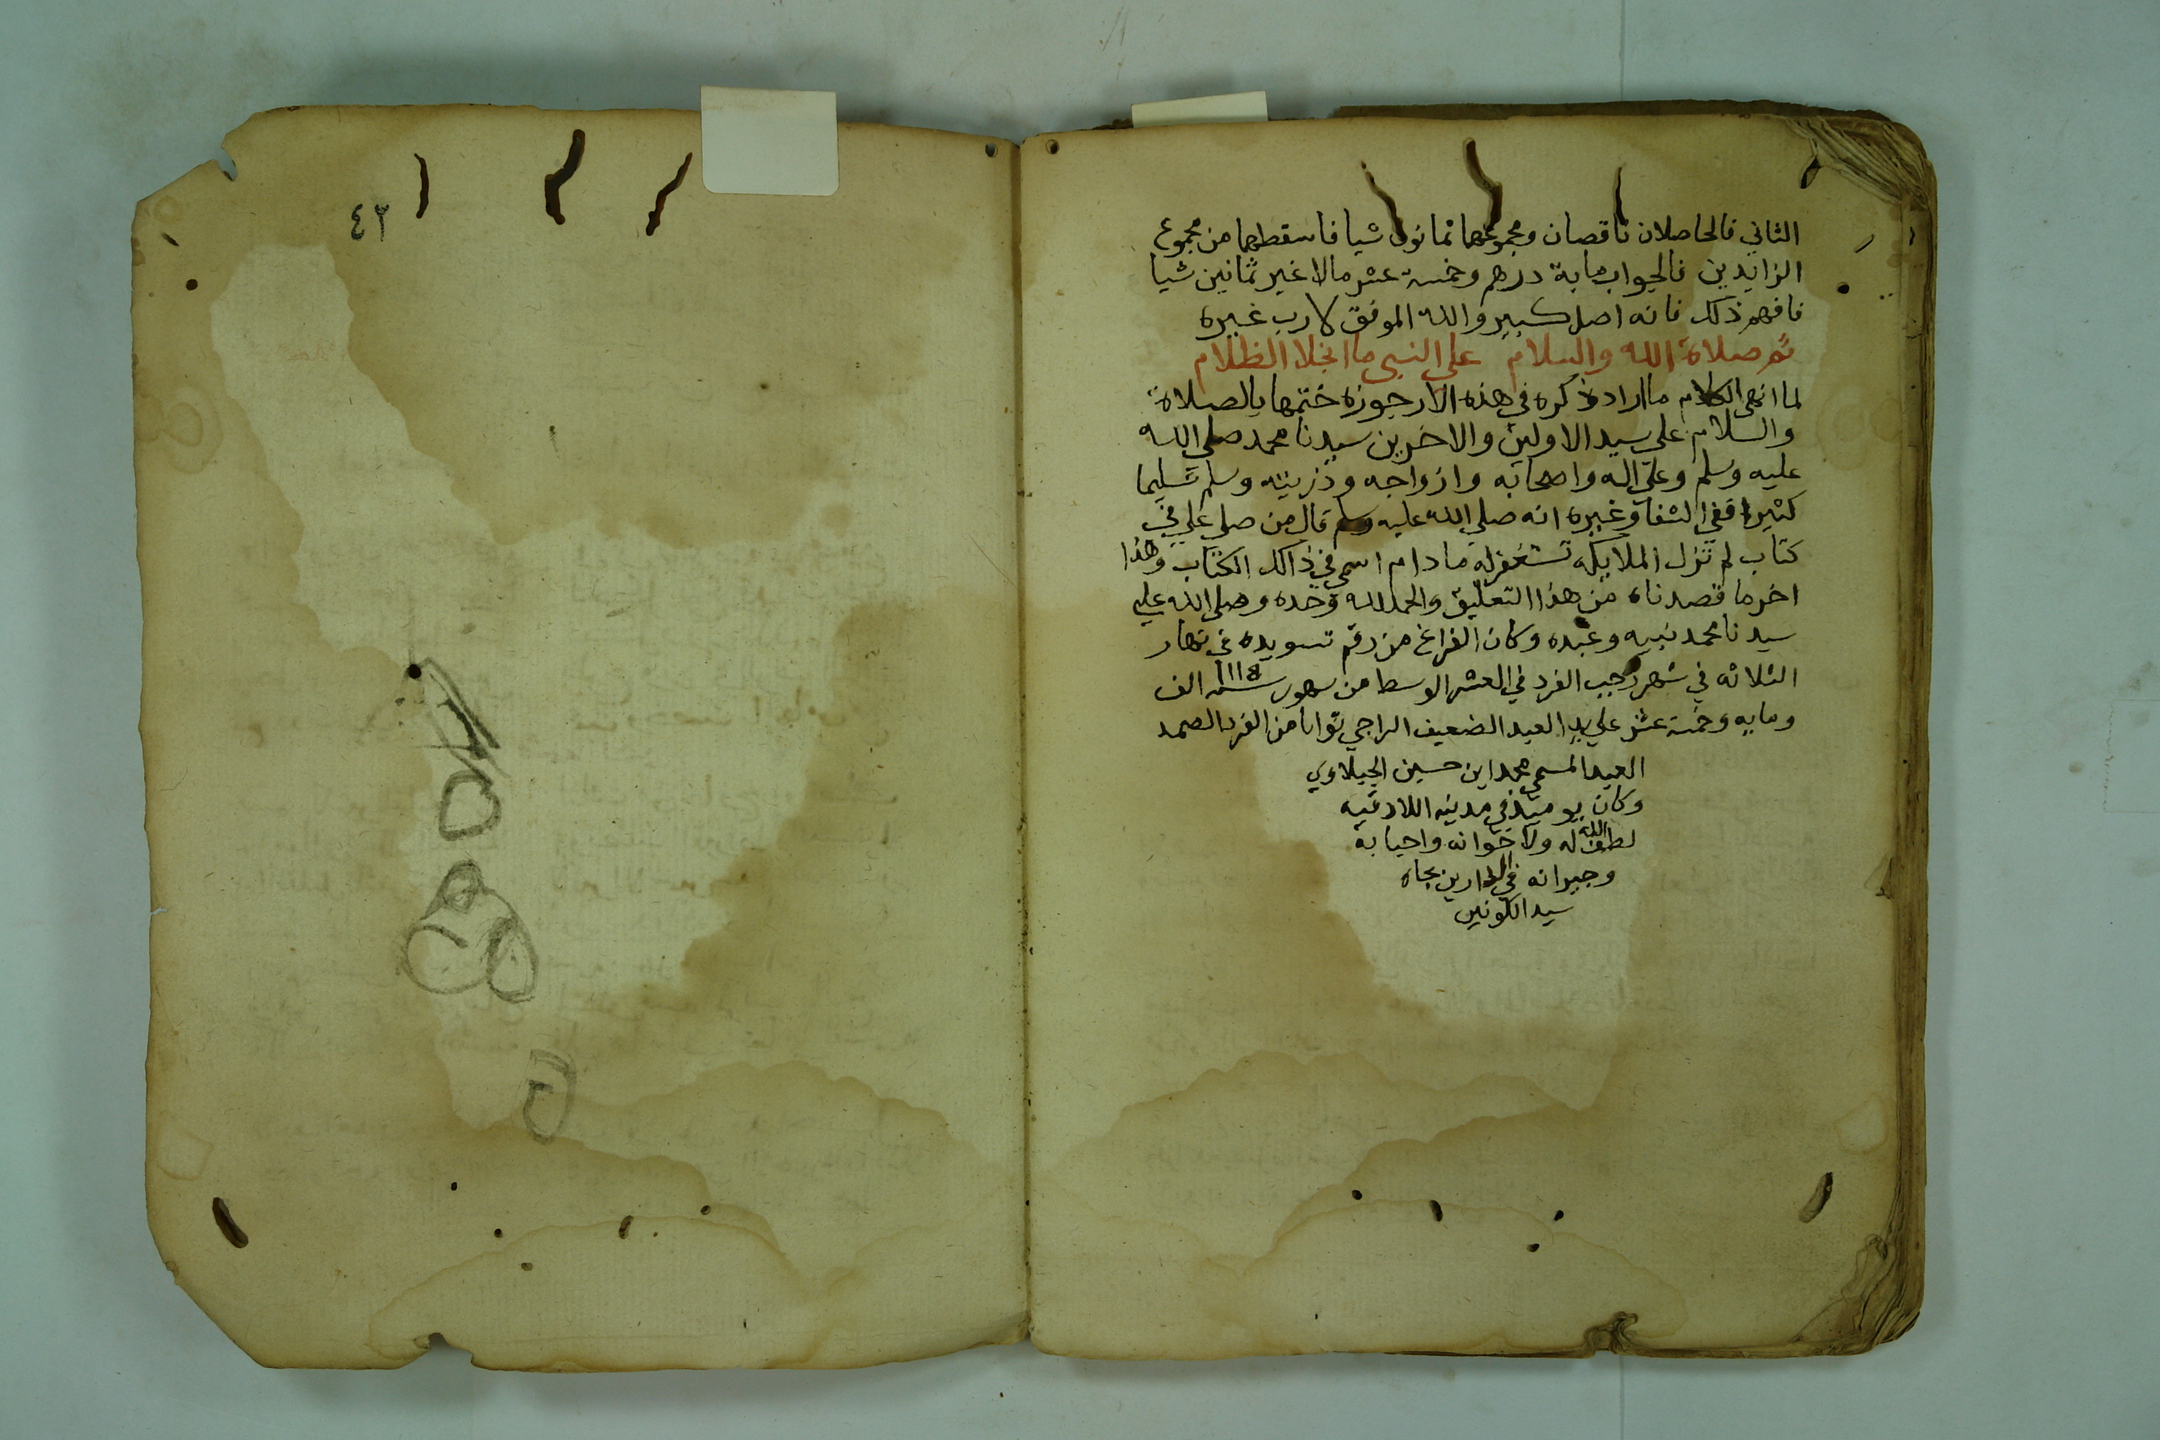 الثاني فالحاصلان ناقصان ومجموعهما ثمانون شيا فاسقطهما من مجموع
الزايدين فالجواب ماية درهم وخمسة عشر مالا غير ثمانين شيا
فافهم ذلك فانه اصل كبير والله الموفق لا رب غيره
ثم صلاة الله والسلام على النبي ما انجلا الظلام
لما انهى الكلام ما اراد ذكره في هذه الارجوزه ختمها بالصلاة
والسلام على سيد الاولين والاخرين سيدنا محمد صلى الله
عليه وسلم وعلى اله واصحابه وازواجه وذريته وسلم تسليما
كثيرا ففي الشفا وغيره انه صلى الله عليه وسلم قال من صلي علي في
كتاب لم تزل الملايكه تستغفر له ما دام اسمي في ذالك الكتاب وهذا
اخر ما قصدناه من هذا التعليق والحمد لله وحده وصلى الله علي
سيدنا محمد نبيه وعبده وكان الفراغ من رقم تسويده في نهار
الثلاثه في شهر رجب الفرد في العشر الوسط من سهور سنة ١١١٥ الف
ومايه وخمسة عشر علي يد العبد الضعيف الراجي ثوابا من الفرد الصمد
العبد المسمي محمد ابن حسين الجيلاوي
وكان يوميذ في مدينه اللادقيه
لطف الله له ولاخوانه واحبابه
وجيرانه في الدارين بجاه
سيد الكونين
٤٢